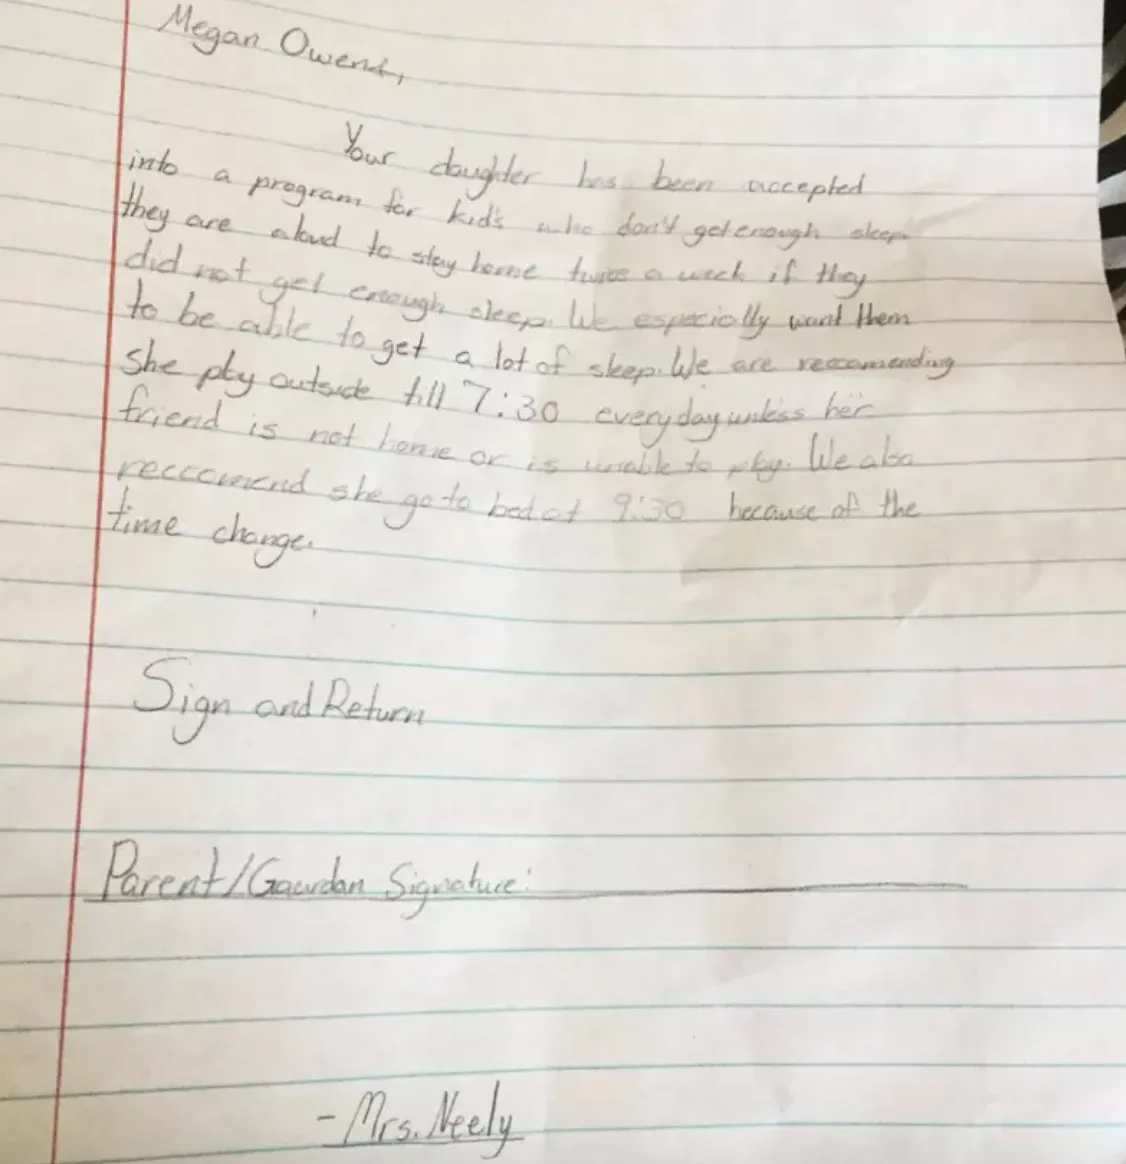 Megan Owens,
Your daughter has been accepted
into a program for kid's who don't get enough sleep
they are aloud to stay home twice a week if they
did not get enough sleep. We especially want them
to be able to get a lot of sleep. We are reccomending
she play outside till 7:30 everyday unless her
friend is not home or is unable to play. We also
reccomend she go to bed at 9:30 because of the
time change.
Sign and Return
Parent/Gaurdan Signature:
- Mrs. Neely